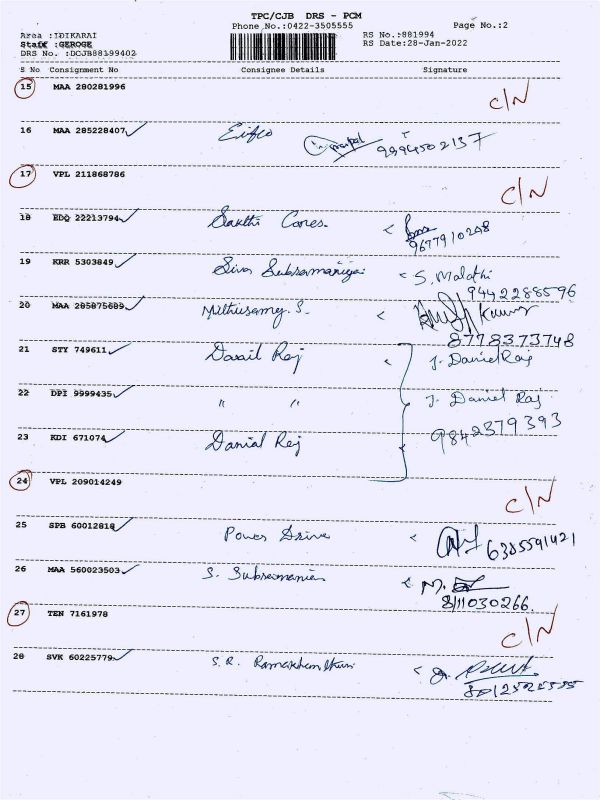 TPC/CJB DRS - PCM
Phone No.:0422-3505555 Page No.:2
Area :IDIKARAI RS No.:881994
Staff :GEROGE RS Date:28-Jan-2022
DRS No. :DCJB88199402
S No Consignment No Consignee Details Signature
15 MAA 280281996 C/N
16 MAA 285228407 Principal 9994502137
17 VPL 211868786 C/N
18 EDQ 22213794 Sakthi Cones. 9677910248
19 KRR 5303849 Siva Subramaniya S. Malathi
9442288596
20 MAA 285875689 Muthusamy. S. Kumar
8778373748
21 STY 749611 Danail Raj J. Daniel Raj
22 DPI 9999435 " " J. Daniel Raj
23 KDI 671074 Danial Raj 9842379393
24 VPL 209014249 C/N
25 SPB 60012818 Power Drive 6385591421
26 MAA 560023503 S. Subramanian M.
8111030266.
27 TEN 7161978 C/N
28 SVK 60225779 S. R.